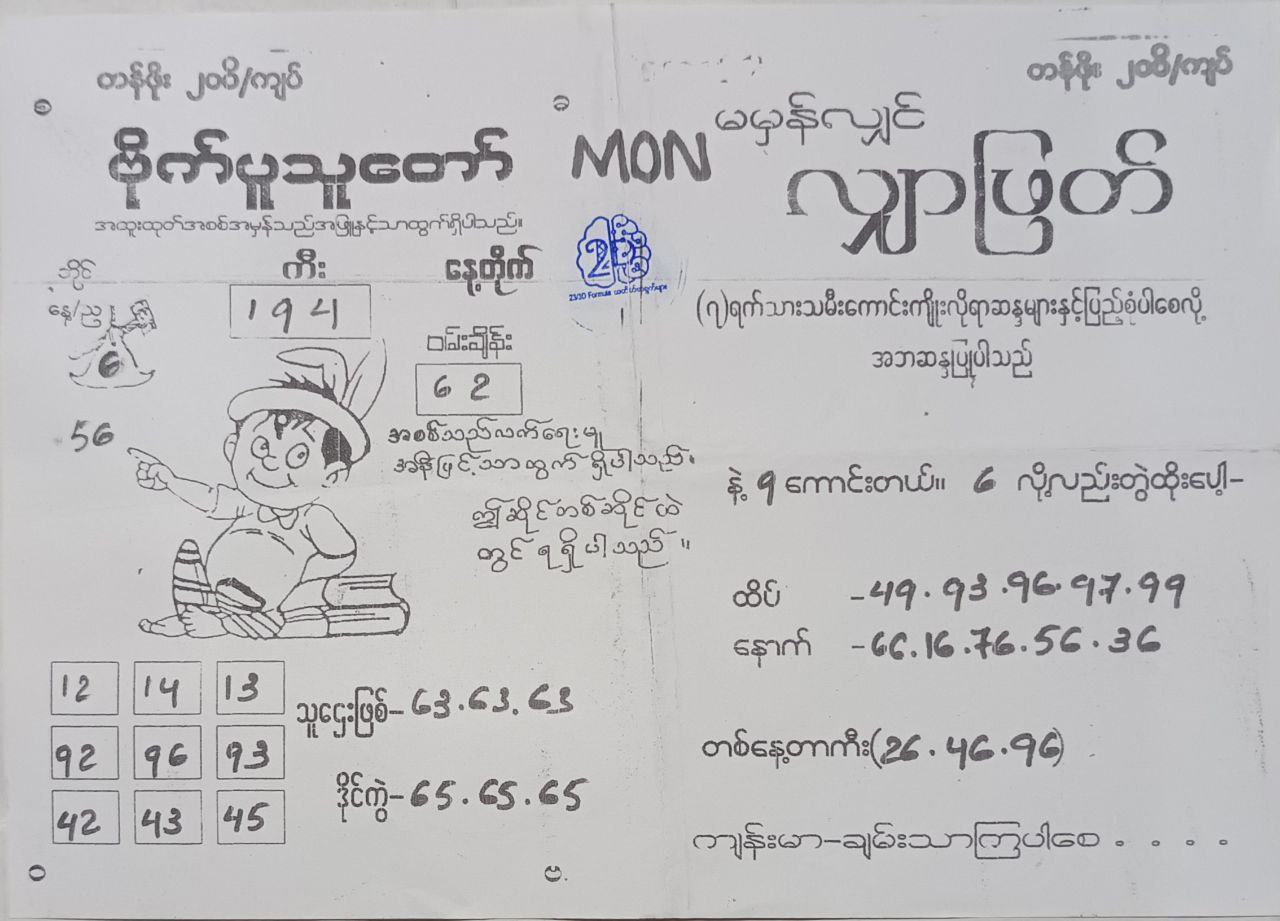 တန်ဖိုး ၂၀၀ိ/ကျပ်
ဗိုက်ပူသူတော်
အထူးထုတ်အစစ်အမှန်သည်အဖြူနှင့်သာထွက်ရှိပါသည်။
ဘိုင်
နေ့/ည
6
ကီး
194
နေ့တိုက်
ဝမ်းချိန်း
6 2
56
PK
အစစ်သည်လက်ရေးမူ
အနီဖြင့်သာထွက်ရှိပါသည်။
ဤဆိုင်တစ်ဆိုင်ထဲ
တွင် ရရှိပါသည်။
12 14 13
92 96 93
42 43 45
သူဌေးဖြစ်–63.63.63
ဒိုင်ကွဲ–65.65.65
တန်ဖိုး ၂၀၀ိ/ကျပ်
MON
မမှန်လျှင်
လျှာဖြတ်
2D
2D/3D Formula
(၇)ရက်သားသမီးကောင်းကျိုးလိုရာဆန္ဒများနှင့်ပြည့်စုံပါစေလို့
အဘဆန္ဒပြုပါသည်
နဲ့ 9 ကောင်းတယ်။ 6 လို့လည်းတွဲထိုးပေါ့–
ထိပ် –49.93.96.97.99
နောက် –66.16.76.56.36
တစ်နေ့တာကီး(26.46.96)
ကျန်းမာ–ချမ်းသာကြပါစေ . . . .